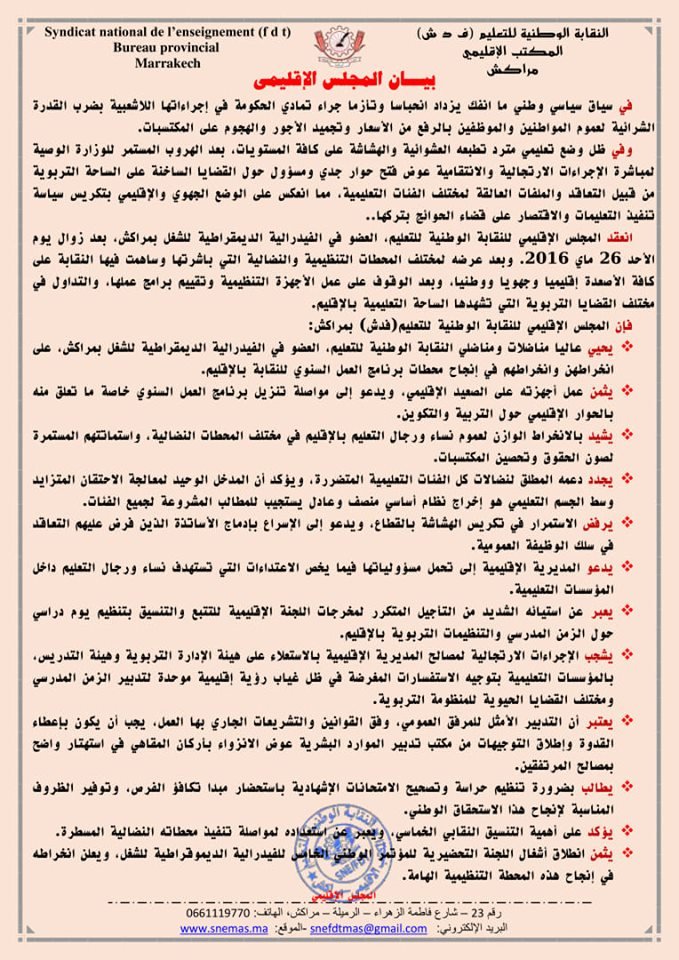 Syndicat national de l'enseignement (f d t)
Bureau provincial
Marrakech
النقابة الوطنية للتعليم (ف د ش)
المكتب الإقليمي
مراكش
بيـــان المجلس الإقليمي
في سياق سياسي وطني ما انفك يزداد انحباسا وتأزما جراء تمادي الحكومة في إجراءاتها اللاشعبية بضرب القدرة
الشرائية لعموم المواطنين والموظفين بالرفع من الأسعار وتجميد الأجور والهجوم على المكتسبات.
وفي ظل وضع تعليمي مترد تطبعه العشوائية والهشاشة على كافة المستويات، بعد الهروب المستمر للوزارة الوصية
لمباشرة الإجراءات الارتجالية والانتقامية عوض فتح حوار جدي ومسؤول حول القضايا الساخنة على الساحة التربوية
من قبيل التعاقد والملفات العالقة لمختلف الفئات التعليمية، مما انعكس على الوضع الجهوي والإقليمي بتكريس سياسة
تنفيذ التعليمات والاقتصار على قضاء الحوائج بتركها..
انعقد المجلس الإقليمي للنقابة الوطنية للتعليم، العضو في الفيدرالية الديمقراطية للشغل بمراكش، بعد زوال يوم
الأحد 26 ماي 2016. وبعد عرضه لمختلف المحطات التنظيمية والنضالية التي باشرتها وساهمت فيها النقابة على
كافة الأصعدة إقليميا وجهويا ووطنيا، وبعد الوقوف على عمل الأجهزة التنظيمية وتقييم برامج عملها، والتداول في
مختلف القضايا التربوية التي تشهدها الساحة التعليمية بالإقليم.
فإن المجلس الإقليمي للنقابة الوطنية للتعليم(فدش) بمراكش:
❖ يحيي عاليا مناضلات ومناضلي النقابة الوطنية للتعليم، العضو في الفيدرالية الديمقراطية للشغل بمراكش، على
انخراطهن وانخراطهم في إنجاح محطات برنامج العمل السنوي للنقابة بالإقليم.
❖ يثمن عمل أجهزته على الصعيد الإقليمي، ويدعو إلى مواصلة تنزيل برنامج العمل السنوي خاصة ما تعلق منه
بالحوار الإقليمي حول التربية والتكوين.
❖ يشيد بالانخراط الوازن لعموم نساء ورجال التعليم بالإقليم في مختلف المحطات النضالية، واستماتتهم المستمرة
لصون الحقوق وتحصين المكتسبات.
❖ يجدد دعمه المطلق لنضالات كل الفئات التعليمية المتضررة، ويؤكد أن المدخل الوحيد لمعالجة الاحتقان المتزايد
وسط الجسم التعليمي هو إخراج نظام أساسي منصف وعادل يستجيب للمطالب المشروعة لجميع الفئات.
❖ يرفض الاستمرار في تكريس الهشاشة بالقطاع، ويدعو إلى الإسراع بإدماج الأساتذة الذين فرض عليهم التعاقد
في سلك الوظيفة العمومية.
❖ يدعو المديرية الإقليمية إلى تحمل مسؤولياتها فيما يخص الاعتداءات التي تستهدف نساء ورجال التعليم داخل
المؤسسات التعليمية.
❖ يعبر عن استيائه الشديد من التأجيل المتكرر لمخرجات اللجنة الإقليمية للتتبع والتنسيق بتنظيم يوم دراسي
حول الزمن المدرسي والتنظيمات التربوية بالإقليم.
❖ يشجب الإجراءات الارتجالية لمصالح المديرية الإقليمية بالاستعلاء على هيئة الإدارة التربوية وهيئة التدريس،
بالمؤسسات التعليمية بتوجيه الاستفسارات المغرضة في ظل غياب رؤية إقليمية موحدة لتدبير الزمن المدرسي
ومختلف القضايا الحيوية للمنظومة التربوية.
❖ يعتبر أن التدبير الأمثل للمرفق العمومي، وفق القوانين والتشريعات الجاري بها العمل، يجب أن يكون بإعطاء
القدوة وإطلاق التوجيهات من مكتب تدبير الموارد البشرية عوض الانزواء بأركان المقاهي في استهتار واضح
بمصالح المرتفقين.
❖ يطالب بضرورة تنظيم حراسة وتصحيح الامتحانات الإشهادية باستحضار مبدا تكافؤ الفرص، وتوفير الظروف
المناسبة لإنجاح هذا الاستحقاق الوطني.
❖ يؤكد على أهمية التنسيق النقابي الخماسي، ويعبر عن استعداده لمواصلة تنفيذ محطاته النضالية المسطرة.
❖ يثمن انطلاق أشغال اللجنة التحضيرية للمؤتمر الوطني الخامس للفيدرالية الديموقراطية للشغل، ويعلن انخراطه
في إنجاح هذه المحطة التنظيمية الهامة.
المجلس الإقليمي
رقم 23 – شارع فاطمة الزهراء – الرميلة – مراكش، الهاتف: 0661119770
البريد الإلكتروني: snefdtmas@gmail.com -الموقع: www.snemas.ma